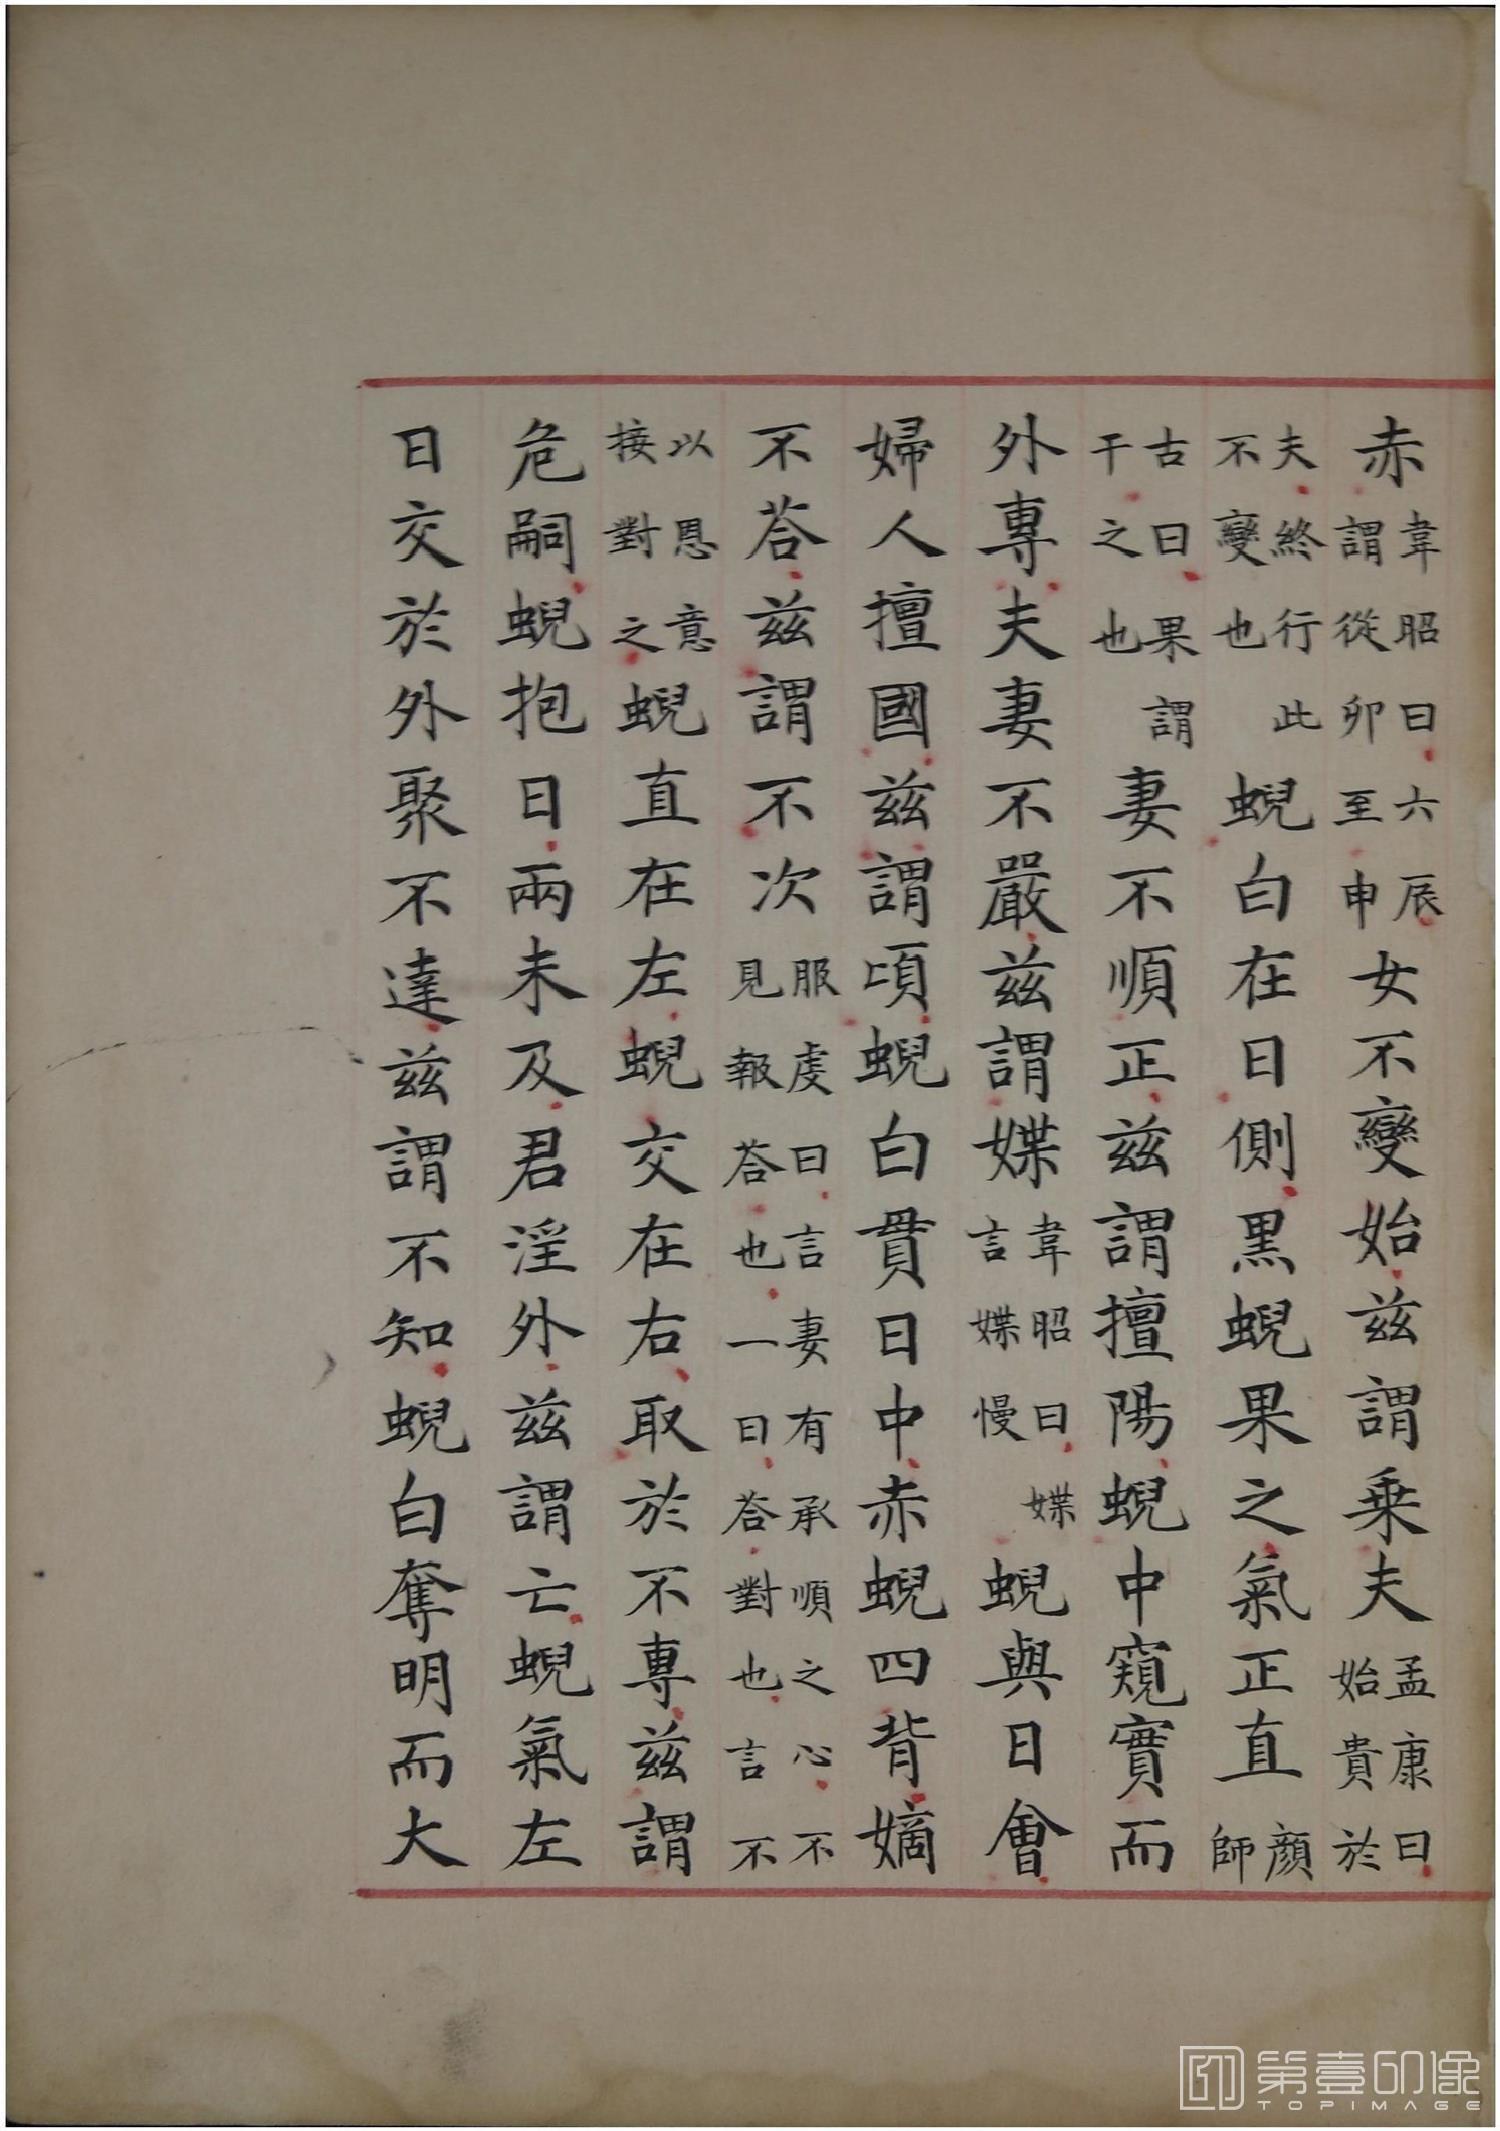 赤韋昭曰六辰謂從卯至申女不變始茲謂乗夫孟康曰始貴於
夫終行此不變也蜺白在日側黒蜺果之氣正直顔師
古曰果謂干之也妻不順正茲謂擅陽蜺中窺實而
外專夫妻不嚴茲謂媟韋昭曰媟言媟慢蜺與日會
婦人擅國茲謂頃蜺白貫日中赤蜺四背嫡
不荅茲謂不次服虔曰言妻有承順之心不見報荅也一曰荅對也言不
以恩意接對之蜺直在左蜺交在右取於不專茲謂
危嗣蜺抱日兩未及君淫外茲謂亡蜺氣左
日交於外聚不達茲謂不知蜺白奪明而大
第壹印像
TOPIMAGE